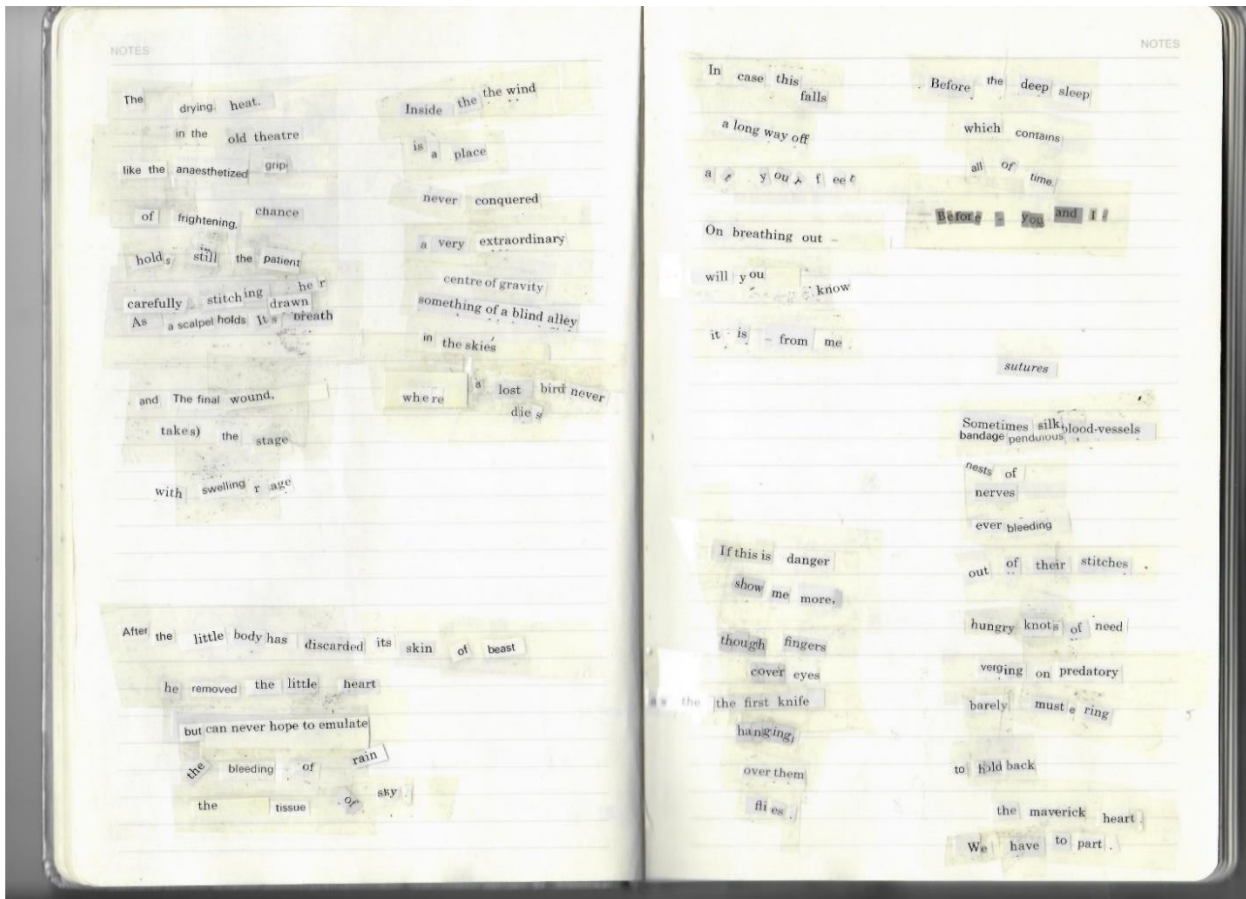 NOTES
The drying. heat.
in the old theatre
like the anaesthetized grip
of frightening, chance
holds still the patient
carefully stitching her
drawn
As a scalpel holds Its breath
and The final wound.
takes) the stage
with swelling rage
Inside the the wind
is a place
never conquered
a very extraordinary
centre of gravity
something of a blind alley
in the skies
where a lost bird never
dies
After the little body has discarded its skin of beast
he removed the little heart
but can never hope to emulate
the bleeding of rain
the tissue of sky.
NOTES
In case this
falls
a long way off
at your feet
On breathing out –
will you know
it is – from me.
Before the deep sleep
which contains
all of time
Before - you and I
If this is danger
show me more,
though fingers
cover eyes
as the the first knife
hanging,
over them
flies.
sutures
Sometimes silk blood-vessels
bandage pendulous
nests of
nerves
ever bleeding
out of their stitches.
hungry knots of need
verging on predatory
barely mustering
to hold back
the maverick heart.
We have to part.